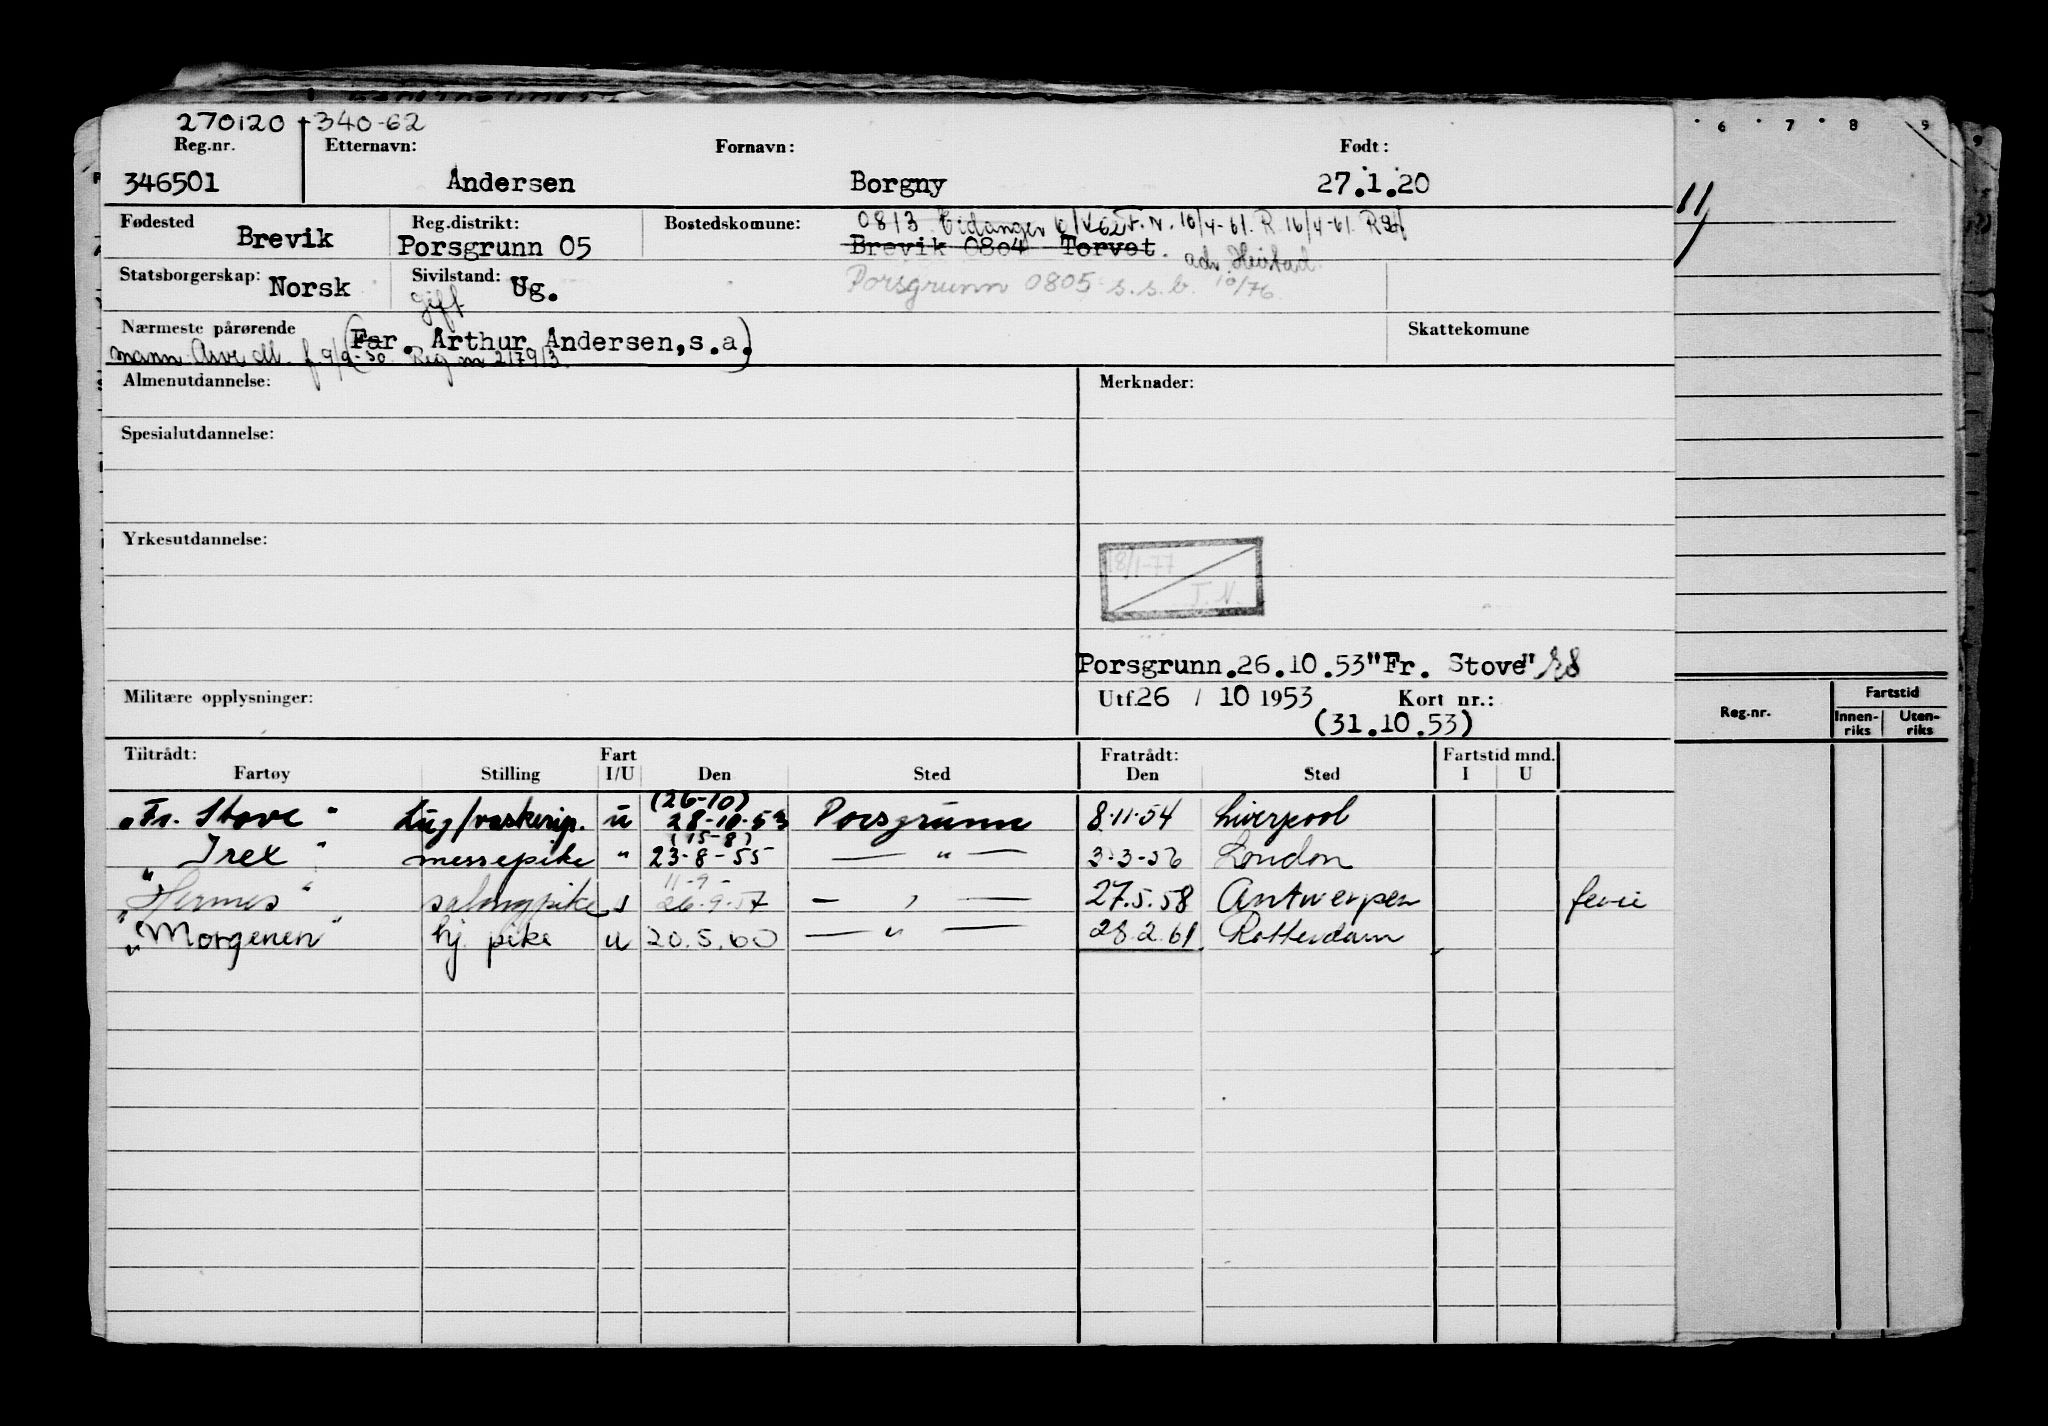 270120 - 340-62
Reg.nr. Etternavn: Fornavn: Født:
346501 Andersen Borgny 27.1.20
Fødested Brevik Reg.distrikt: Porsgrunn 05 Bostedskomune: 0813 Eidanger 10/4-61. R 16/4-61. R
Brevik 0804 Torvet. adr. Heistad.
Statsborgerskap: Norsk Sivilstand: Ug. Porsgrunn 0805 s.s.b. 10/76
gift
Nærmeste pårørende (Far. Arthur Andersen, s.a.) Skattekomune
mann f 9/9-30 Reg nr 217913.
Almenutdannelse: Merknader:
Spesialutdannelse:
Yrkesutdannelse:
18/1-77
T.N.
Porsgrunn.26.10.53 "Fr. Stove"
Militære opplysninger: Utf.26 / 10 1953 Kort nr.:
(31.10.53)
Tiltrådt: Fart Fratrådt: Fartstid mnd.
Fartøy Stilling I/U Den Sted Den Sted I U
(26-10)
"Fr. Stove" Lug/vaskerip. u 28-10-53 Porsgrunn 8-11-54 Liverpool
(15-8)
"Irex" messepike " 23-8-55 — " — 3-3-56 London
11-9-
"Hermes" salongpike 26-9-57 — " — 27.5.58 Antwerpen ferie
"Morgenen" hj. pike u 20.5.60 — " — 28.2.61 Rotterdam
6 7 8 9
11
Reg.nr. Fartstid
Innen-riks Uten-riks